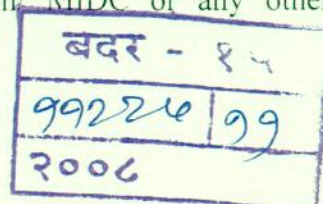 MIDC or any othe
बदर - १५
११
२००८